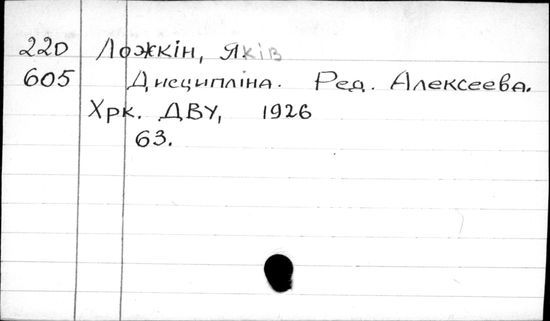 220 Ложкін, Яків
605 Дисципліна. Ред. Алексеева.
Хрк. ДВУ, 1926
63.